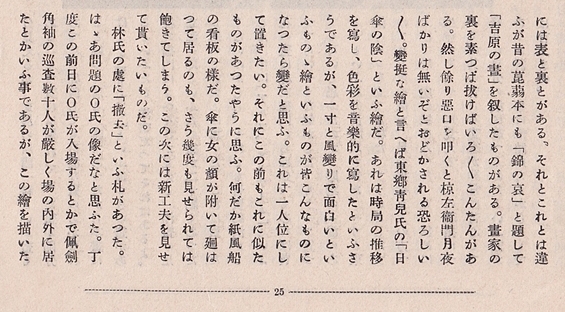 には表と裏とがある。それとこれとは違
ふが昔の菎蒻本にも「錦の哀」と題して
「吉原の晝」を叙したものがある。晝家の
裏を素つぱ拔けばいろ〱こんたんがあ
る。然し餘り惡口を叩くと椋左衞門月夜
ばかりは無いぞとおどかされる恐ろしい
〱。變挺な繪と言へば東鄕靑兒氏の「日
傘の陰」といふ繪だ。あれは時局の推移
を寫し、色彩を音樂的に寫したといふさ
うであるが、一寸と風變りで面白いとい
ふものゝ繪といふものが皆こんなものに
なつたら變だと思ふ。これは一人位にし
て置きたい。それにこの前もこれに似た
ものがあつたやうに思ふ。何だか紙風船
の看板の樣だ。傘に女の顏が附いて廻は
つて居るのも、さう幾度も見せられては
飽きてしまう。この次には新工夫を見せ
て貰いたいものだ。
林氏の處に「撤去」といふ札があつた。
はゝあ問題のO氏の像だなと思ふた。丁
度この前日にO氏が入場するとかで佩劍
角袖の巡査數十人が嚴しく場の内外に居
たとかいふ事であるが、この繪を描いた
25